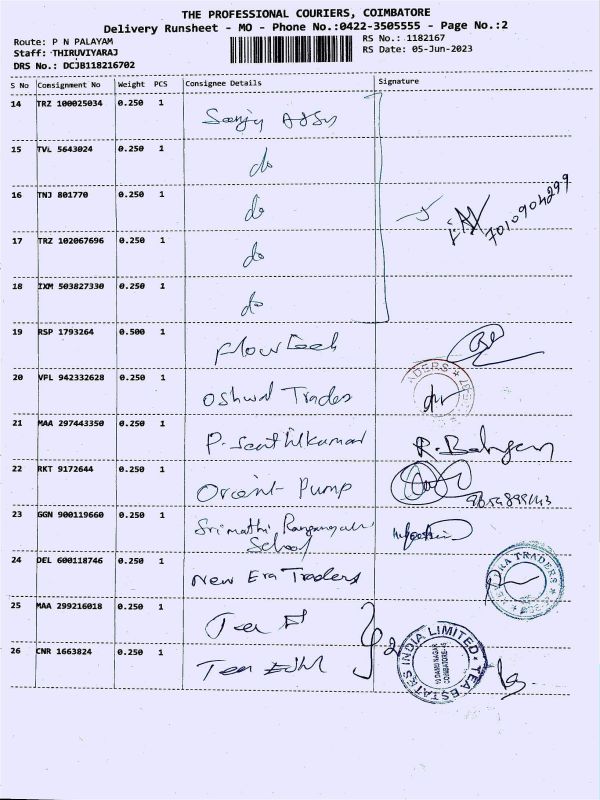 THE PROFESSIONAL COURIERS, COIMBATORE
Delivery Runsheet - MO - Phone No.:0422-3505555 - Page No.:2
Route: P N PALAYAM
Staff: THIRUVIYARAJ
DRS No.: DCJB118216702
RS No.: 1182167
RS Date: 05-Jun-2023
S No Consignment No Weight PCS Consignee Details Signature
14 TRZ 100025034 0.250 1
15 TVL 5643024 0.250 1 do
16 TNJ 801770 0.250 1 do
7010904299
17 TRZ 102067696 0.250 1 do
18 IXM 503827330 0.250 1 do
19 RSP 1793264 0.500 1 Flowtech
20 VPL 942332628 0.250 1 Oshwal Trades
21 MAA 297443350 0.250 1 P. Senthilkumar
22 RKT 9172644 0.250 1 Orient Pump
23 GGN 900119660 0.250 1 Srimathi
School
24 DEL 600118746 0.250 1 New Era Traders
25 MAA 299216018 0.250 1 Tea
26 CNR 1663824 0.250 1 Tea
2
TEA ESTATES INDIA LIMITED
COIMBATORE